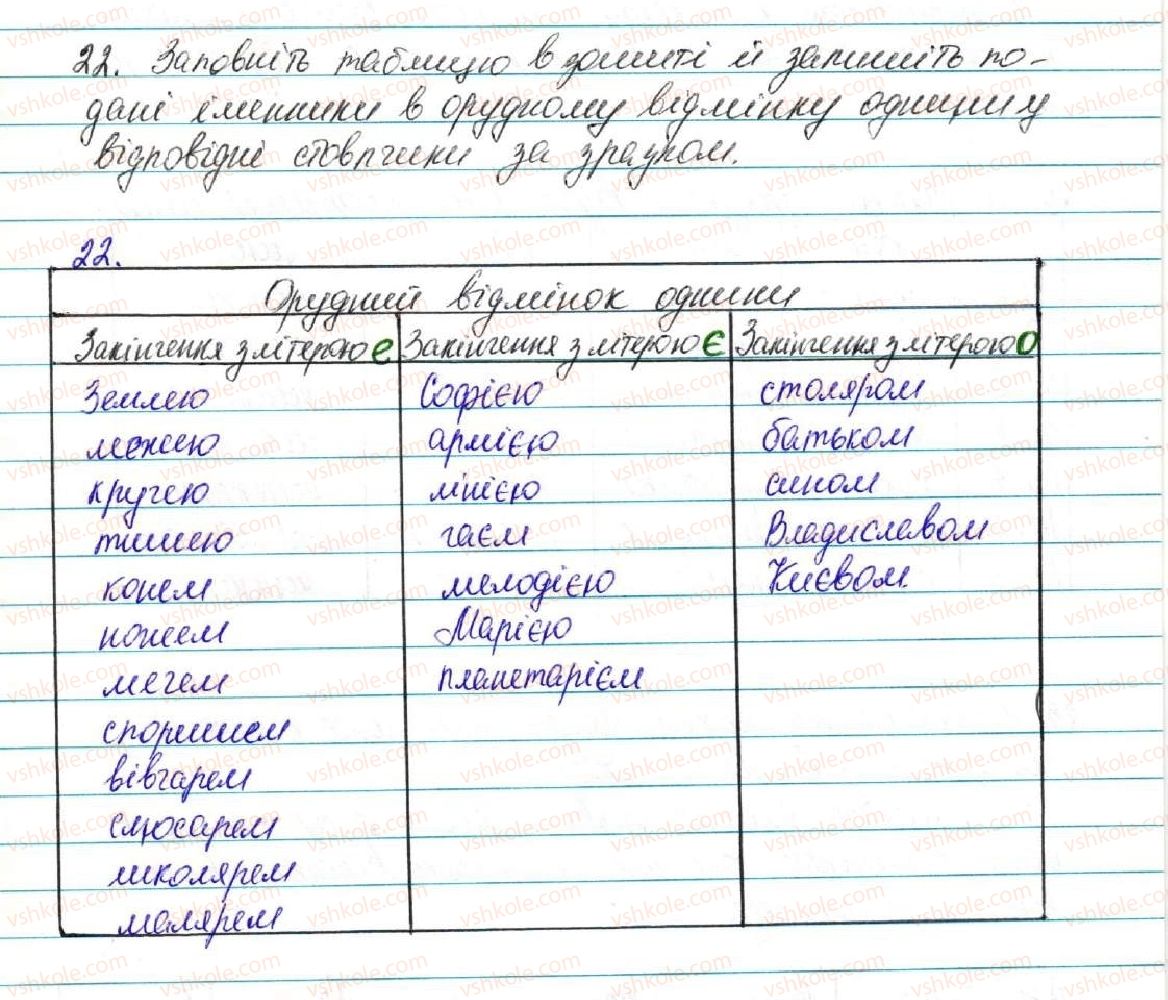 22. Заповніть таблицю в зошиті й запишіть по-
дані іменники в орудному відмінку однини у
відповідні стовпчики за зразком.
22.
Орудний відмінок однини
Закінчення з літерою е Закінчення з літерою є Закінчення з літерою о
Землею Софією столяром
межею армією батьком
кручею лінією сином
тишею гаєм Владиславом
конем мелодією Києвом.
ножем Марією
мечем планетарієм
споришем
вівчарем
слюсарем
школярем
малярем
vshkole.com